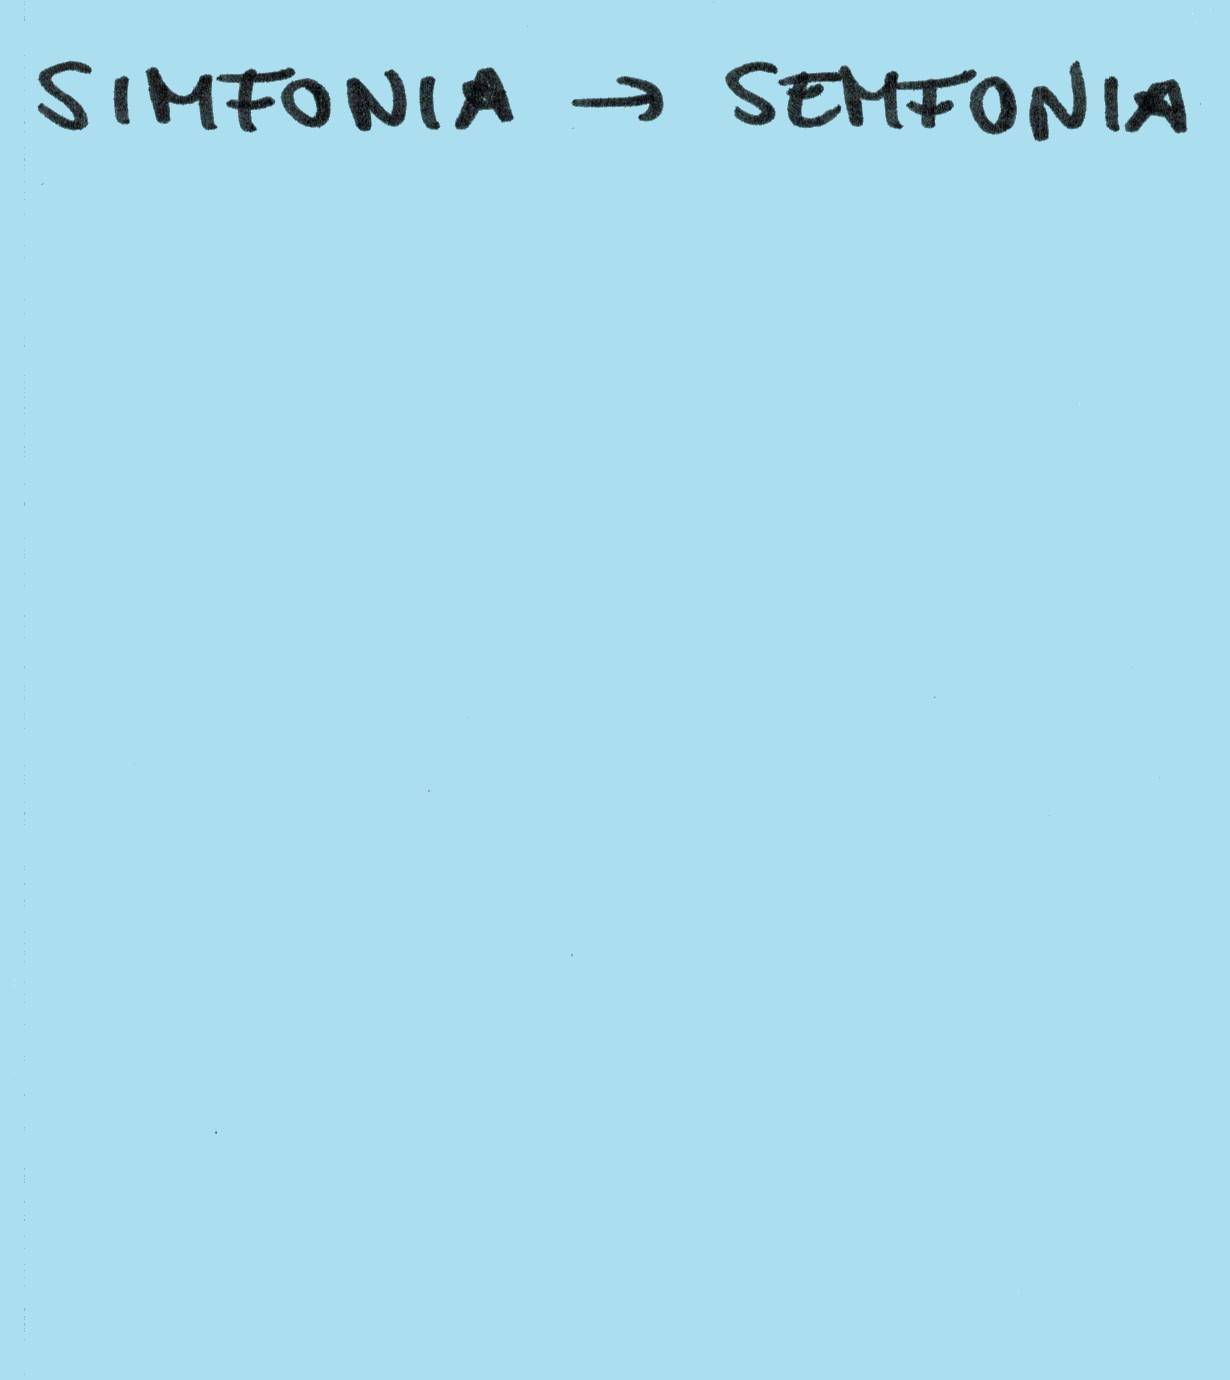 SIMFONIA → SEMFONIA